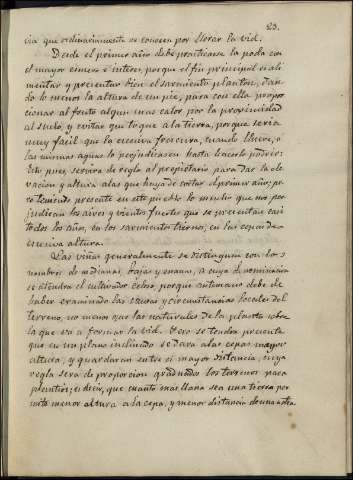 23.
cia que ordinariamente se conocen por llorar la vid.
Desde el primer año debe practicarse la poda con
el mayor esmero e interes, porque el fin principal es ali-
mentar y presentar bien el sarmiento plantón, dan-
do lo menos la altura de un pie, para con ella propor-
cionar al fruto algun mas calor por la proximidad
al suelo, y evitar que toque a la tierra, porque seria
muy facil que la escesiva frescura, cuando llueve, o
las mismas aguas lo perjudicasen hasta hacerlo podrir:
Este pues, servira de regla al propietario para dar la ele-
vacion y altura a las que haya de cortar el primer año; pe-
ro teniendo presente en este pueblo lo mucho que nos per-
judican los aires y vientos fuertes que se presentan casi
todos los años, en los sarmientos tiernos, en las cepas de es-
cesiva altura.
Las viñas generalmente se distinguen con los
nombres de medianas, bajas y enanas, a cuya denominacion
se atendra el cultivador celoso, porque antemano debe de
haber examinado las causas y circunstancias locales del
terreno, no menos que las naturales de la planta sobre
la que va a formar la vid. Pero se tendra presente
que en un plano inclinado se dara a las cepas mayor
altura, y guardaran entre si mayor distancia, cuya
regla sera de proporcion graduados los terrenos para
plantios; es decir, que cuanto mas llana sea una tierra por
menor altura a la cepa, y menor distancia de una a otra.